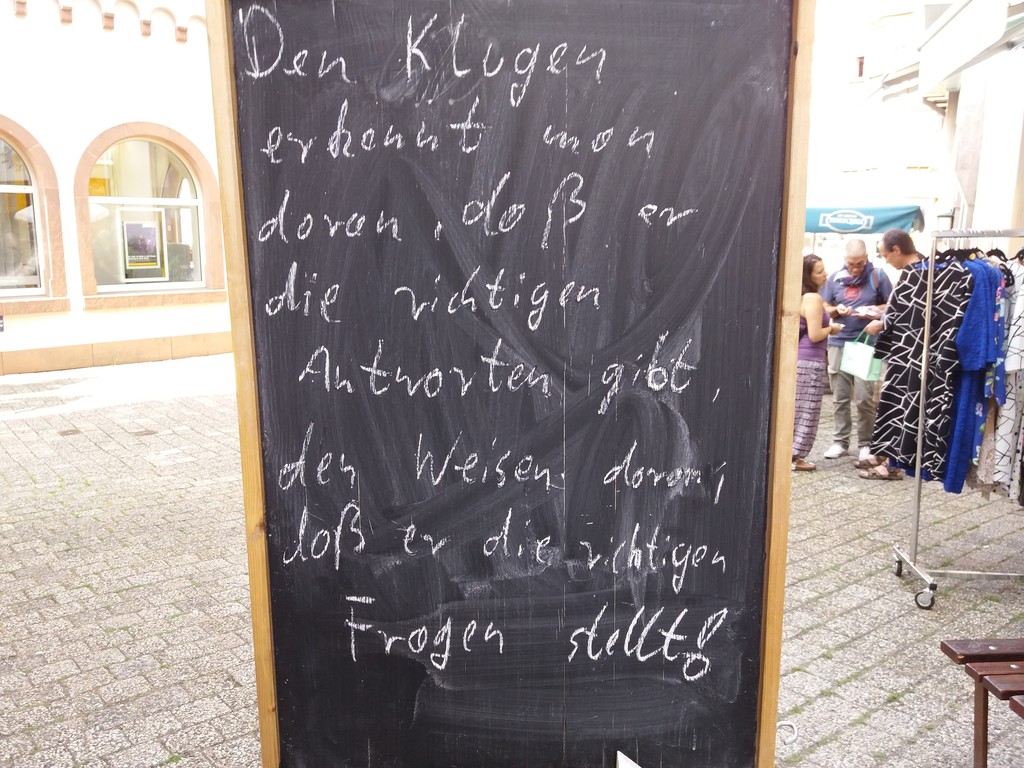 Den Klugen
erkennt man
daran, daß er
die richtigen
Antworten gibt,
den Weisen daran,
daß er die richtigen
Fragen stellt!